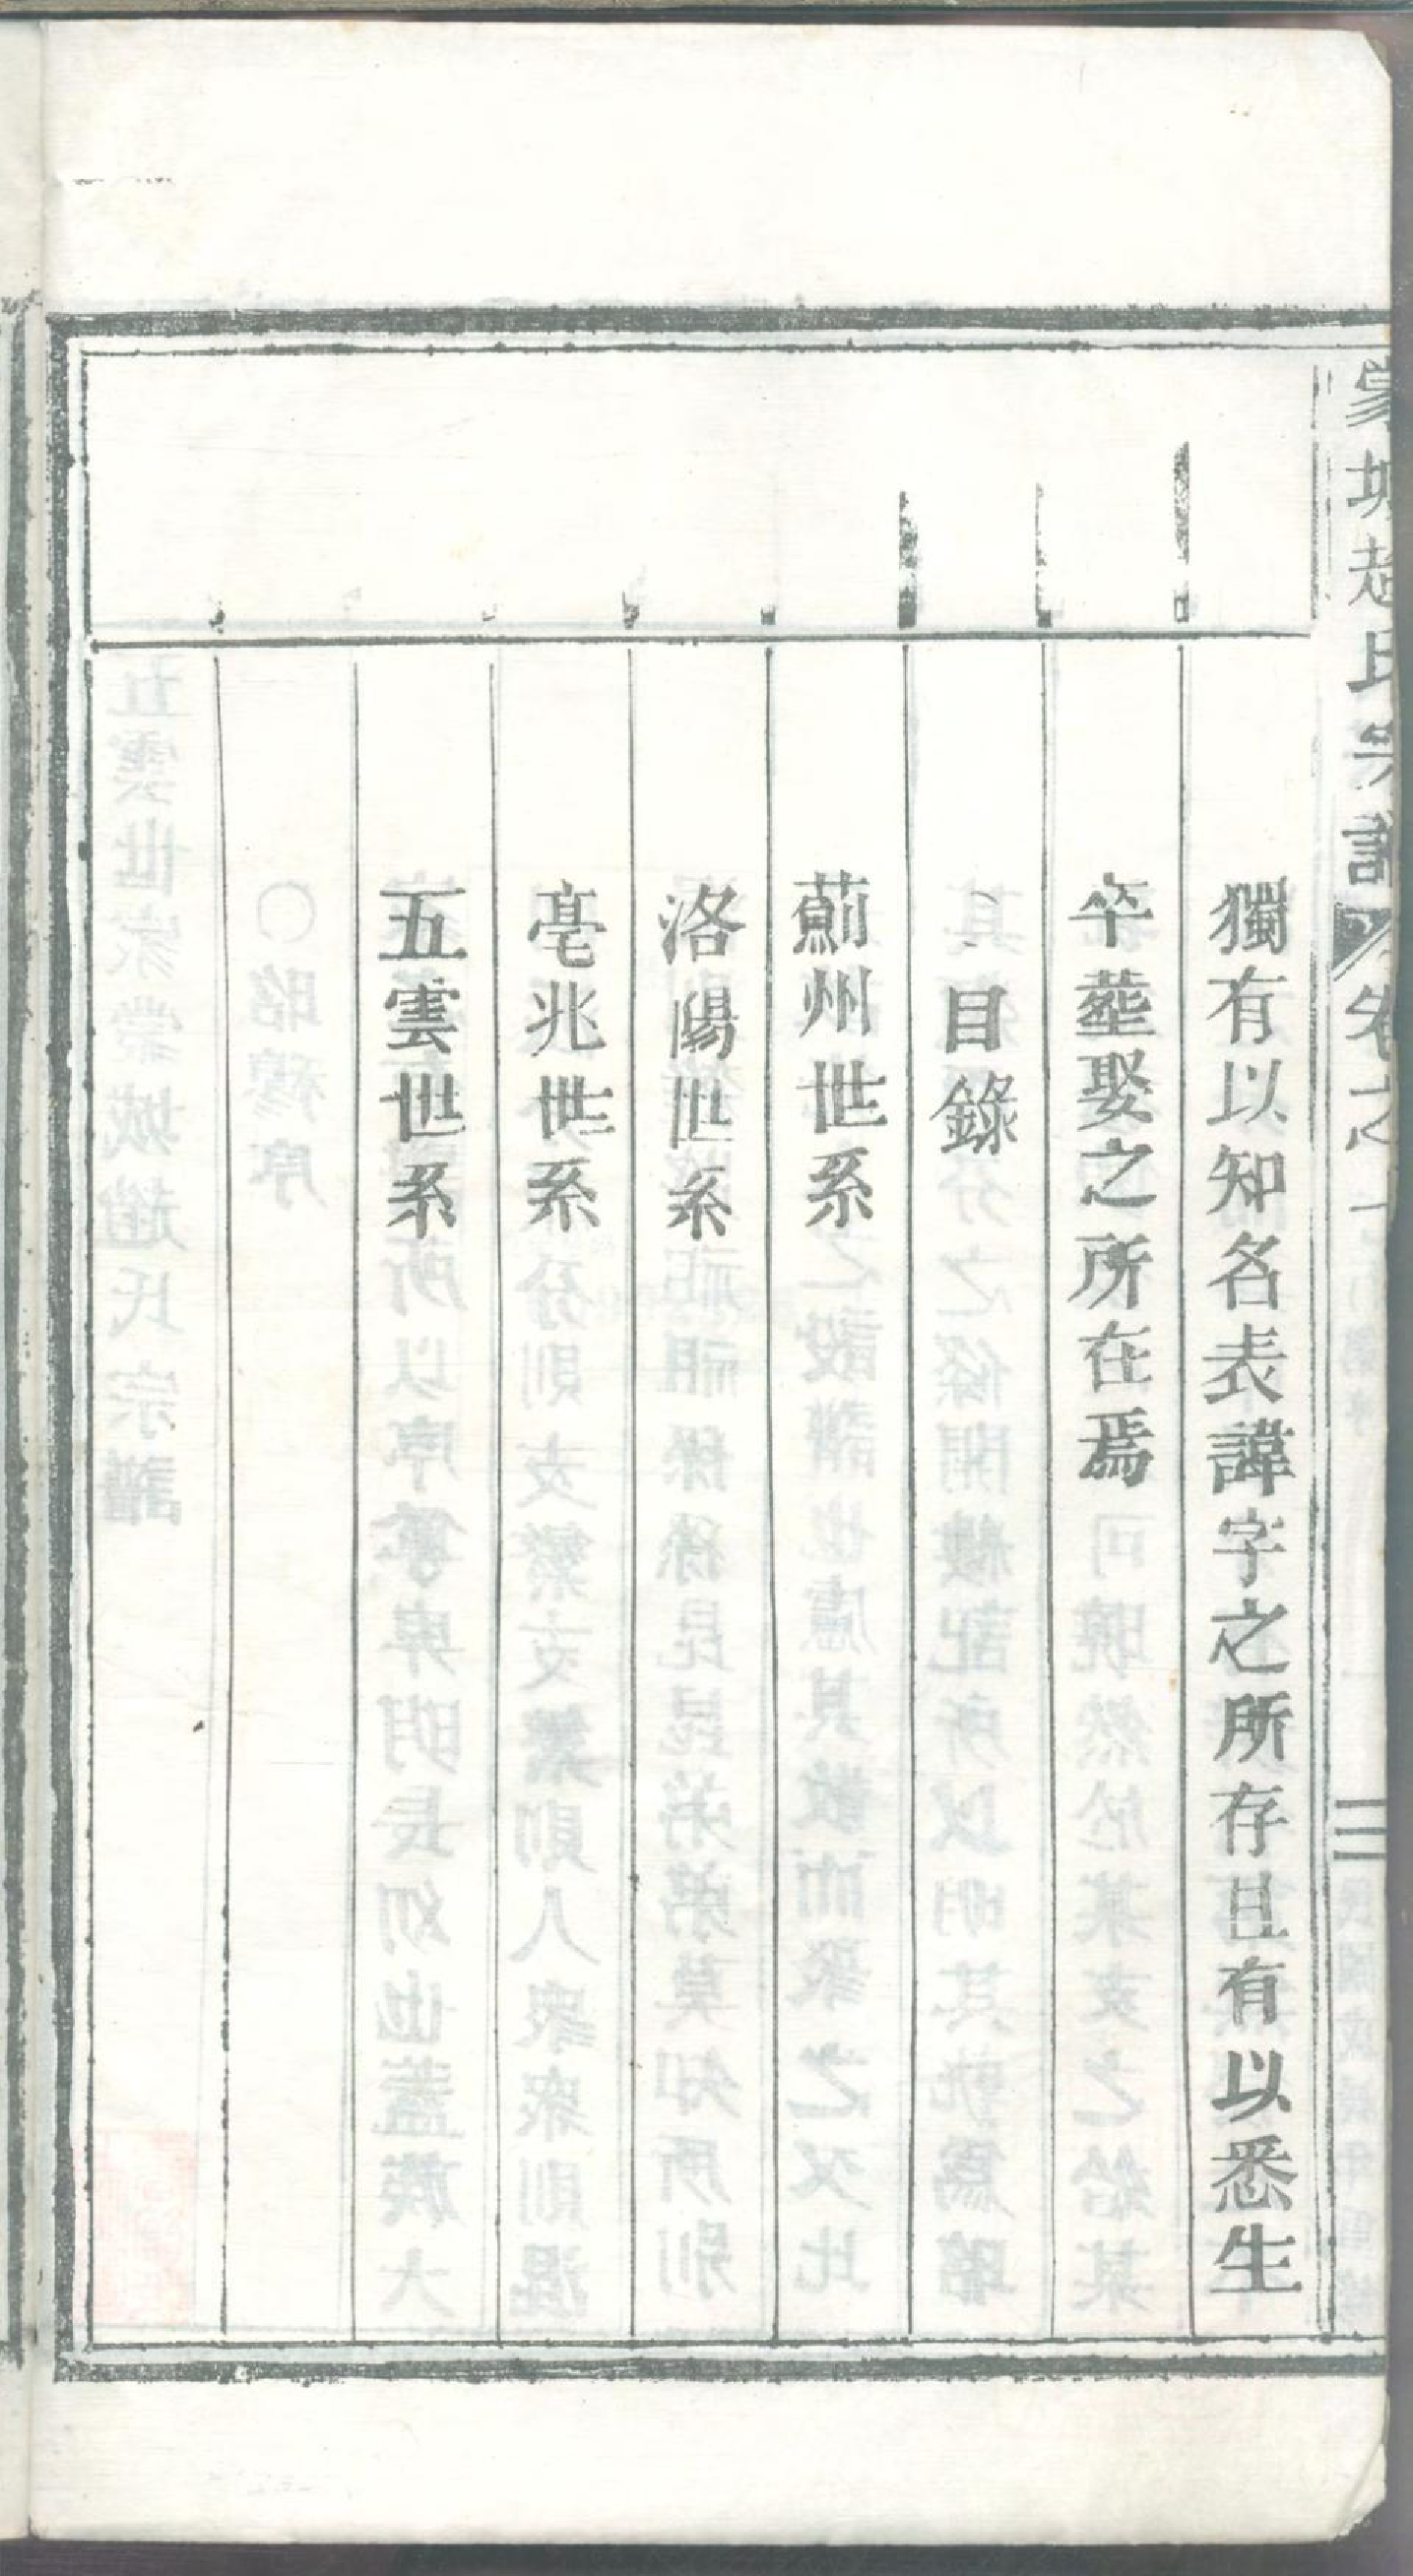 獨有以知名表諱字之所存且有以悉生
卒塟娶之所在焉
目錄
薊州世系
洛陽世系
亳兆世系
五雲世系
趙氏宗譜
卷之一
三